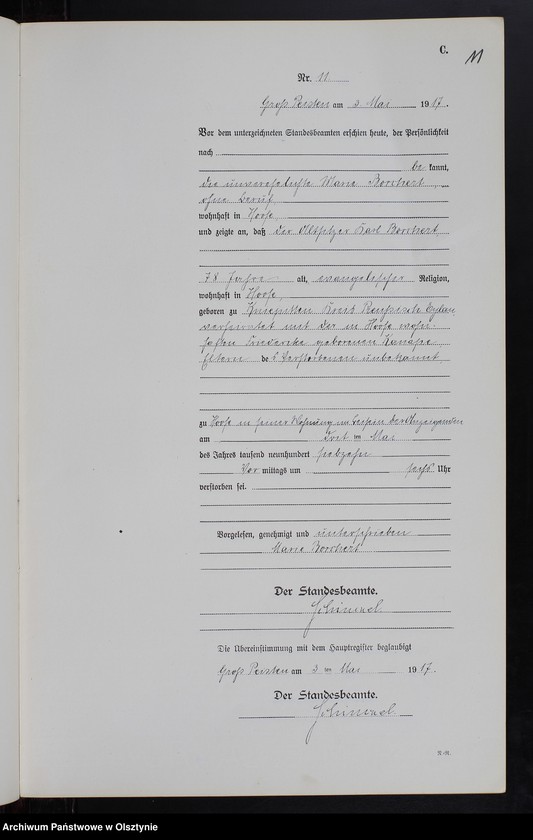 C.
11
Nr. 11
Groß Peisten am 3 Mai 1917.
Vor dem unterzeichneten Standesbeamten erschien heute, der Persönlichkeit
nach
be kannt,
die unverehelichte Marie Borchert,
ohne Beruf,
wohnhaft in Hoofe,
und zeigte an, daß der Altsitzer Karl Borchert,
78 Jahre alt, evangelischer Religion,
wohnhaft in Hoofe,
geboren zu Kreis Preußisch Eylau
verheiratet mit der in Hoofe wohn-
haften geborenen
Eltern des Verstorbenen unbekannt,
zu Hoofe in seiner Wohnung im Beisein der Anzeigenden
am Mai
des Jahres tausend neunhundert siebzehn
Vor mittags um sechs Uhr
verstorben sei.
Vorgelesen, genehmigt und unterschrieben
Marie Borchert
Der Standesbeamte.
Schimmel
Die Übereinstimmung mit dem Hauptregister beglaubigt
Groß Peisten am 3 ten Mai 1917.
Der Standesbeamte.
Schimmel
Archiwum Państwowe w Olsztynie